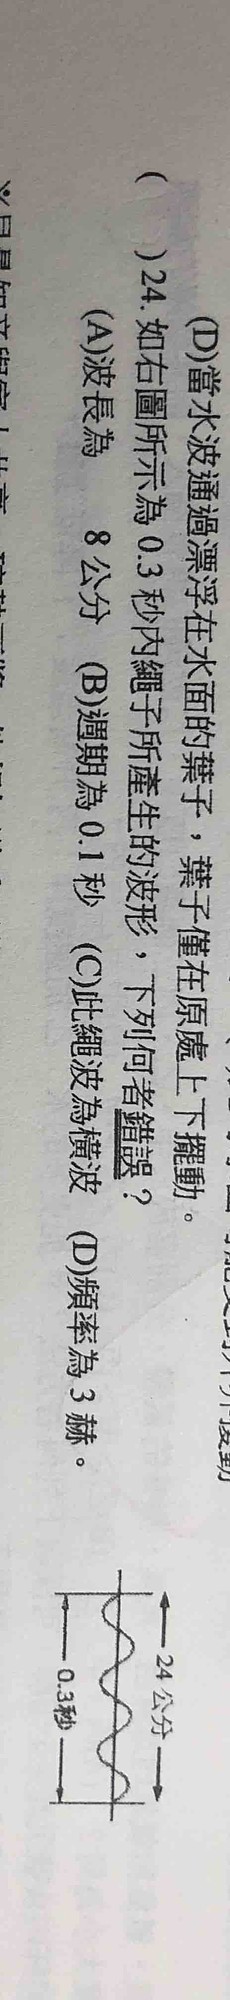 (D)當水波通過漂浮在水面的葉子，葉子僅在原處上下擺動。
(　)24.如右圖所示為 0.3 秒內繩子所產生的波形，下列何者錯誤？
(A)波長為　8 公分　(B)週期為 0.1 秒　(C)此繩波為橫波　(D)頻率為 3 赫。
24 公分
0.3秒